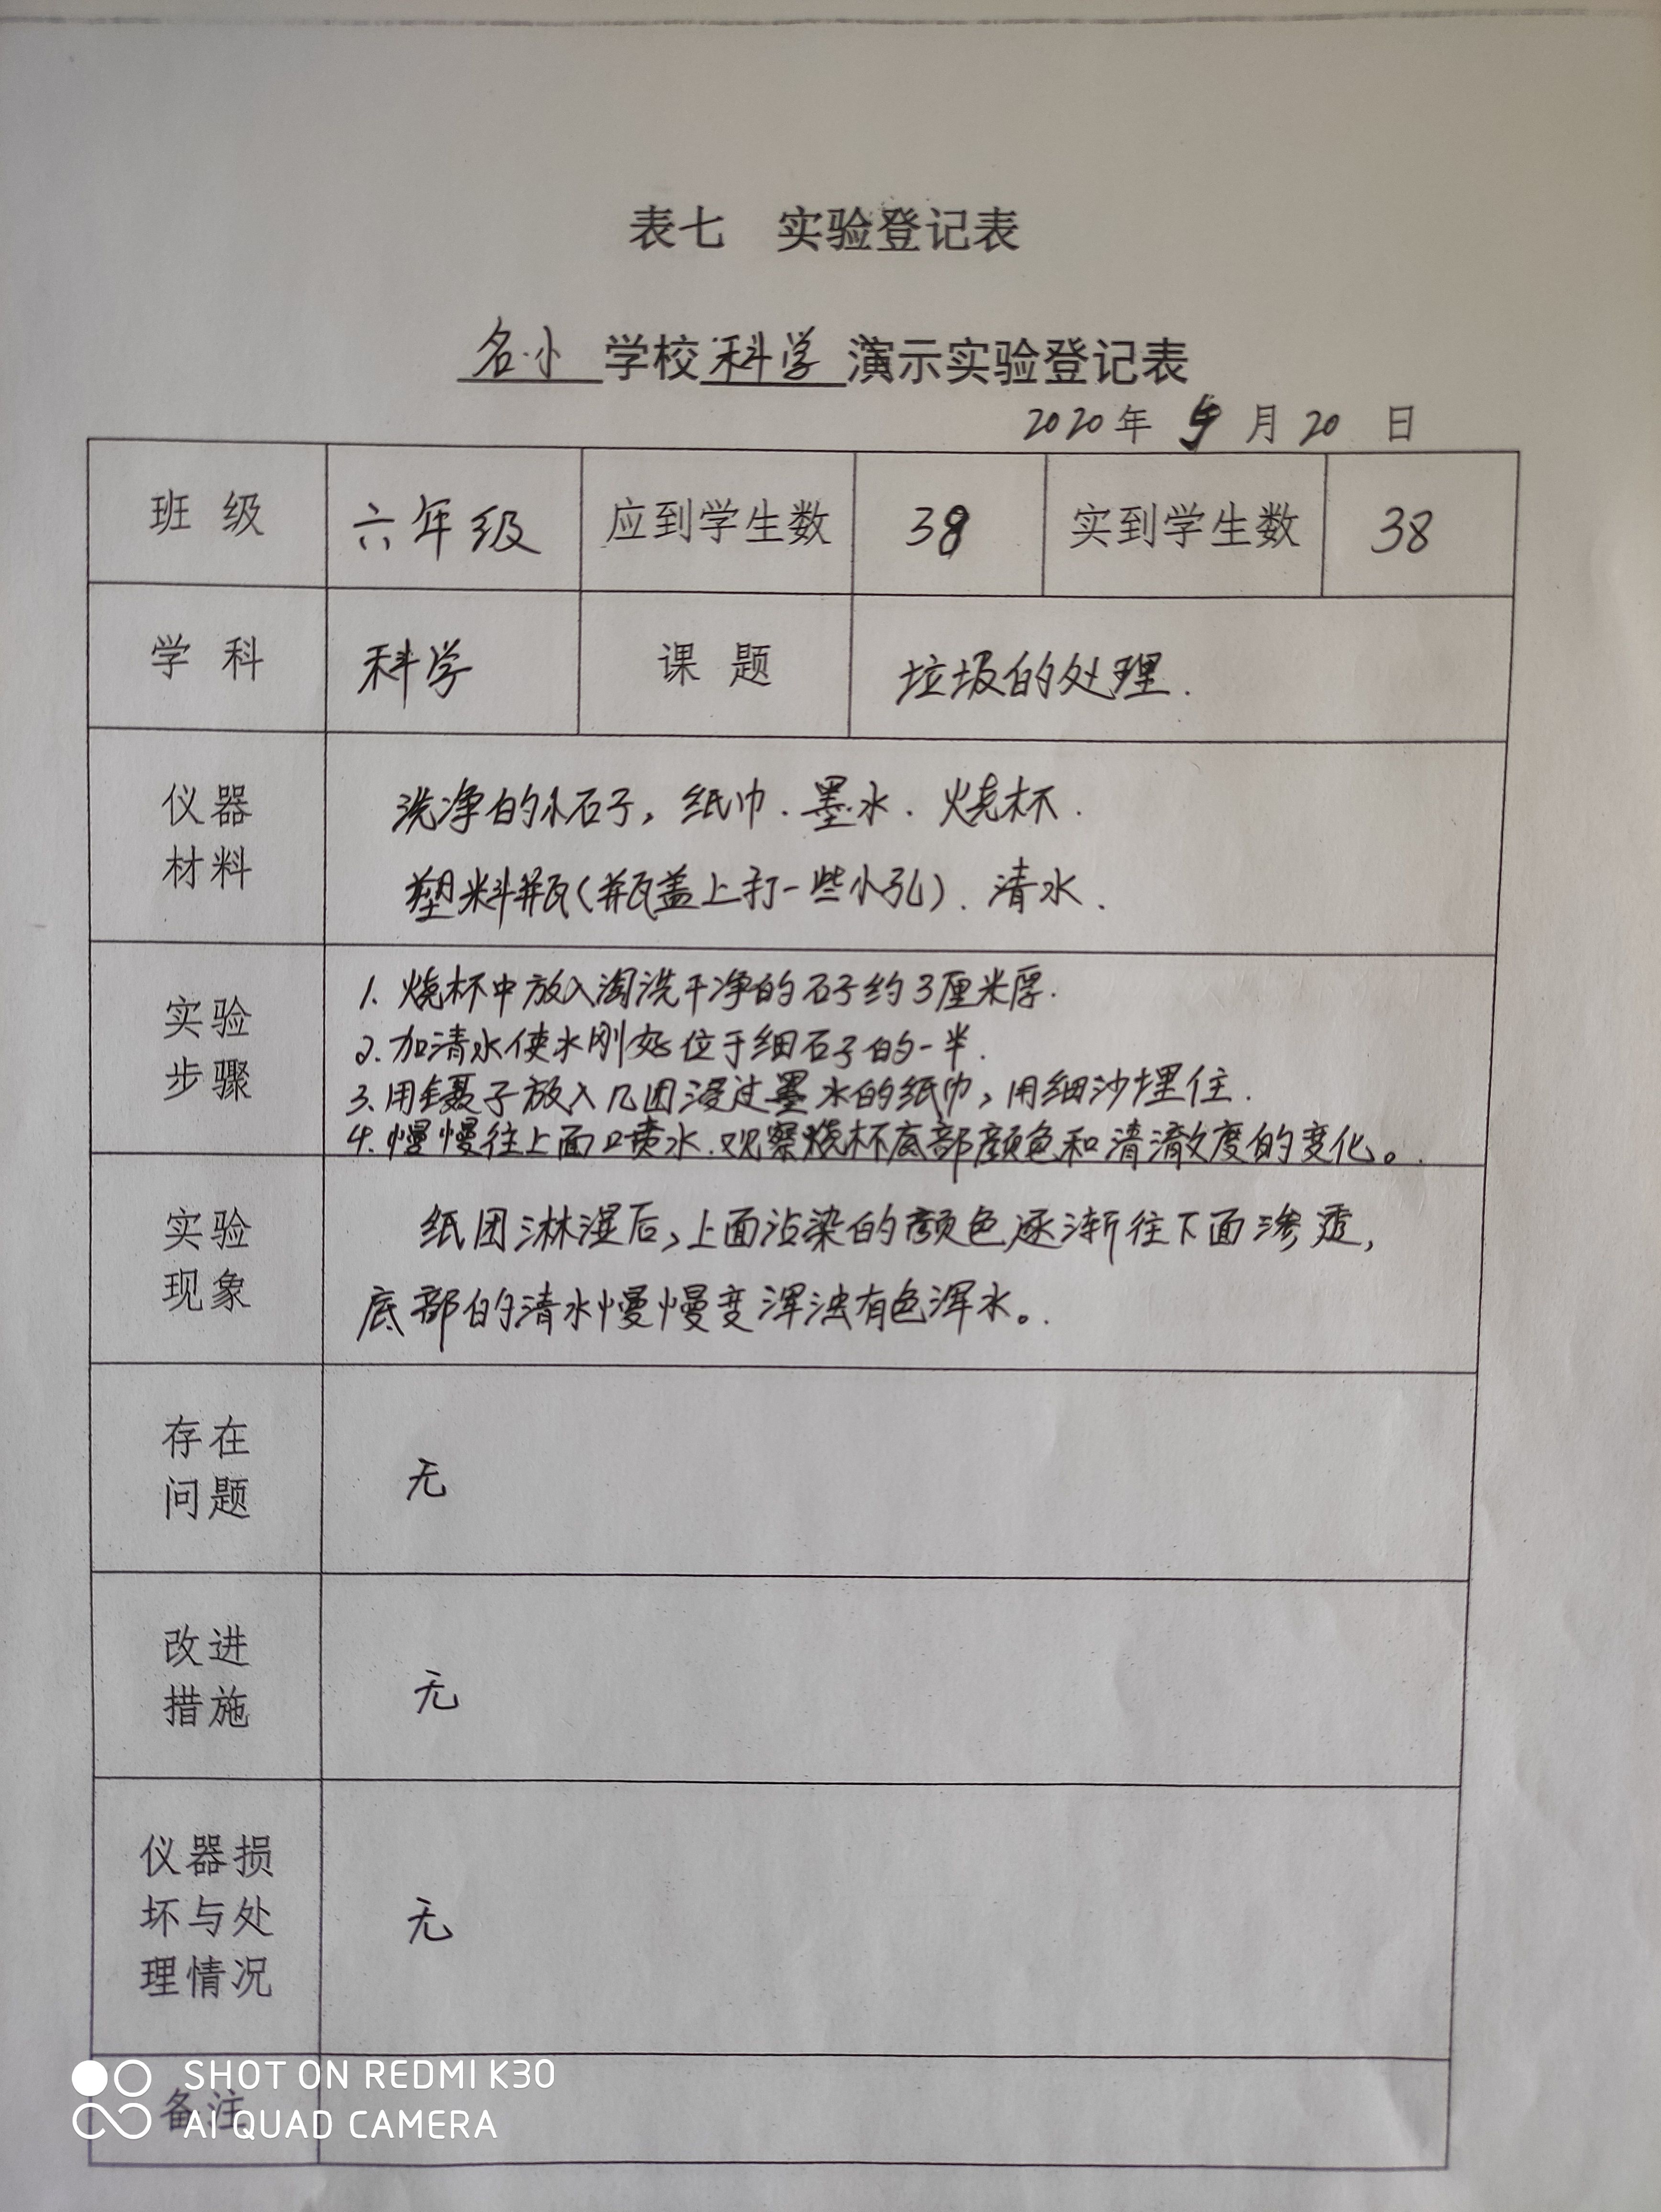 表七 实验登记表
名小 学校 科学 演示实验登记表
2020年 5 月 20 日
班 级 六年级 应到学生数 38 实到学生数 38
学 科 科学 课 题 垃圾的处理.
仪器
材料
洗净的小石子，纸巾.墨水.烧杯.
塑料瓶(瓶盖上打一些小孔).清水.
实验
步骤
1.烧杯中放入淘洗干净的石子约3厘米厚.
2.加清水使水刚好位于细石子的一半.
3.用镊子放入几团浸过墨水的纸巾，用细沙埋住.
4.慢慢往上面喷水.观察烧杯底部颜色和清澈度的变化。.
实验
现象
纸团淋湿后，上面沾染的颜色逐渐往下面渗透，
底部的清水慢慢变浑浊有色浑水。.
存在
问题
无
改进
措施
无
仪器损
坏与处
理情况
无
备注
SHOT ON REDMI K30
AI QUAD CAMERA